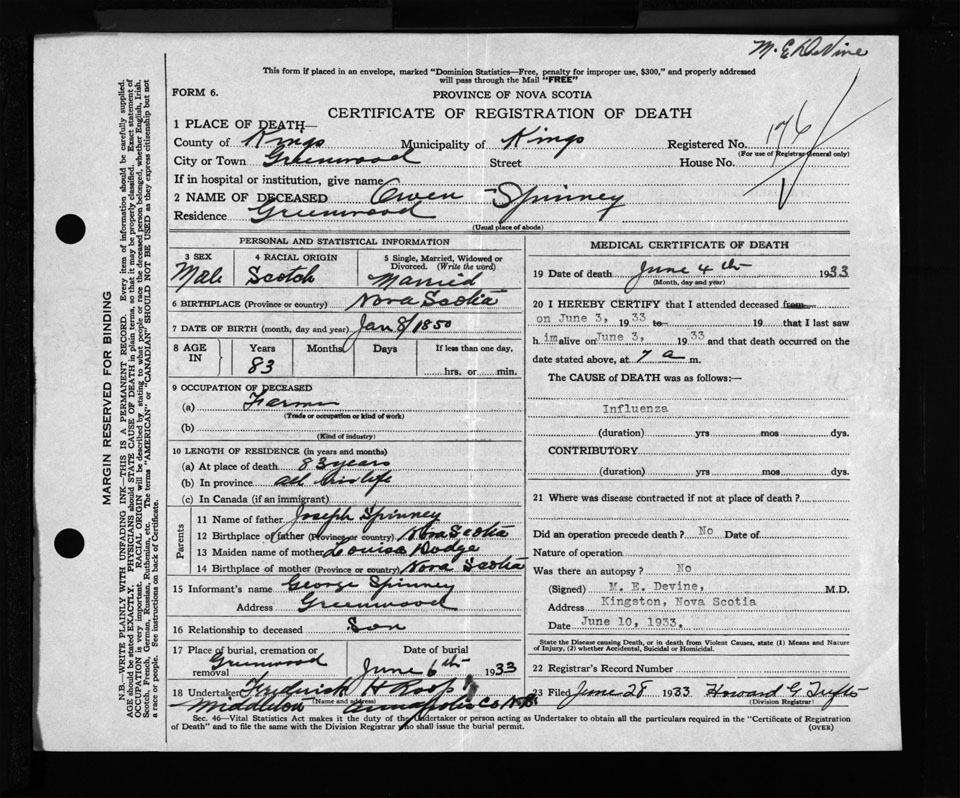 M. E. DeVine
This form if placed in an envelope, marked "Dominion Statistics—Free, penalty for improper use, $300," and properly addressed
will pass through the Mail "FREE"
FORM 6.
PROVINCE OF NOVA SCOTIA
CERTIFICATE OF REGISTRATION OF DEATH
1 PLACE OF DEATH—
County of Kings Municipality of Kings Registered No. 176
(For use of Registrar General only)
City or Town Greenwood Street House No.
If in hospital or institution, give name
2 NAME OF DECEASED Owen Spinney
Residence Greenwood
(Usual place of abode)
PERSONAL AND STATISTICAL INFORMATION
3 SEX 4 RACIAL ORIGIN 5 Single, Married, Widowed or
Divorced. (Write the word)
Male Scotch Married
6 BIRTHPLACE (Province or country) Nova Scotia
7 DATE OF BIRTH (month, day and year) Jan 8/1850
8 AGE IN Years Months Days If less than one day,
83 hrs. or min.
9 OCCUPATION OF DECEASED
(a) Farmer
(Trade or occupation or kind of work)
(b)
(Kind of industry)
10 LENGTH OF RESIDENCE (in years and months)
(a) At place of death 83 years
(b) In province all his life
(c) In Canada (if an immigrant)
Parents
11 Name of father Joseph Spinney
12 Birthplace of father (Province or country) Nova Scotia
13 Maiden name of mother Louisa Dodge
14 Birthplace of mother (Province or country) Nova Scotia
15 Informant's name George Spinney
Address Greenwood
16 Relationship to deceased Son
17 Place of burial, cremation or removal Date of burial
Greenwood June 6th 1933
18 Undertaker Frederick H Roop
(Name and address)
Middleton Annapolis Co N.S.
MEDICAL CERTIFICATE OF DEATH
19 Date of death June 4th 1933
(Month, day and year)
20 I HEREBY CERTIFY that I attended deceased from
on June 3, 1933 to 19 that I last saw
h im alive on June 3, 1933 and that death occurred on the
date stated above, at 7 a m.
The CAUSE of DEATH was as follows:—
Influenza
(duration) yrs mos dys.
CONTRIBUTORY
(duration) yrs mos dys.
21 Where was disease contracted if not at place of death?
Did an operation precede death? No Date of
Nature of operation
Was there an autopsy? No
(Signed) M. E. Devine, M.D.
Address Kingston, Nova Scotia
Date June 10, 1933.
State the Disease causing Death, or in death from Violent Causes, state (1) Means and Nature
of Injury, (2) whether Accidental, Suicidal or Homicidal.
22 Registrar's Record Number
23 Filed June 28 1933 Howard G.
(Division Registrar)
Sec. 46—Vital Statistics Act makes it the duty of the Undertaker or person acting as Undertaker to obtain all the particulars required in the "Certificate of Registration
of Death" and to file the same with the Division Registrar who shall issue the burial permit. (OVER)
MARGIN RESERVED FOR BINDING
N.B.—WRITE PLAINLY WITH UNFADING INK—THIS IS A PERMANENT RECORD. Every item of information should be carefully supplied.
AGE should be stated EXACTLY. PHYSICIANS should STATE CAUSE OF DEATH in plain terms, so that it may be properly classified. Exact statement of
OCCUPATION is very important. RACIAL ORIGIN will be described by stating to what people or race the deceased person belonged, whether English, Irish,
Scotch, French, German, Russian, Ruthenian, etc. The terms "AMERICAN" or "CANADIAN" SHOULD NOT BE USED as they express citizenship but not
a race or people. See instructions on back of Certificate.